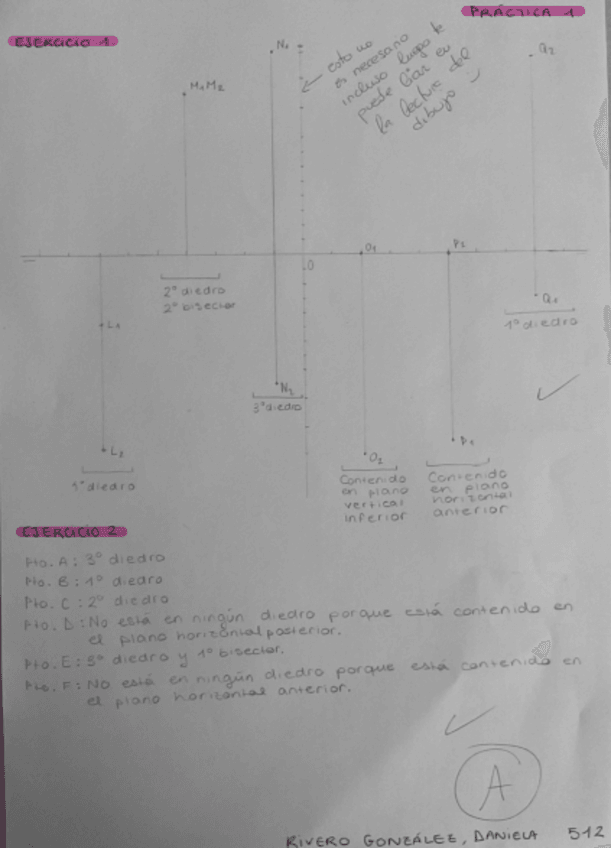 PRÁCTICA 1
EJERCICIO 1
esto no
es necesario
incluso luego te
puede liar en
la lectura del
dibujo :)
N1
Q2
M1M2
O1
P2
O
2º diedro
2º bisector
Q1
1º diedro
L1
N2
3º diedro
L2
P1
O2
diedro
Contenido
en plano
vertical
inferior
Contenido
en plano
horizontal
anterior
EJERCICIO 2
Pto. A: 3º diedro
Pto. B: 1º diedro
Pto. C: 2º diedro
Pto. D: No está en ningún diedro porque está contenido en
el plano horizontal posterior.
Pto. E: 3º diedro y 1º bisector.
Pto. F: No está en ningún diedro porque está contenido en
el plano horizontal anterior.
A
RIVERO GONZÁLEZ, DANIELA 512